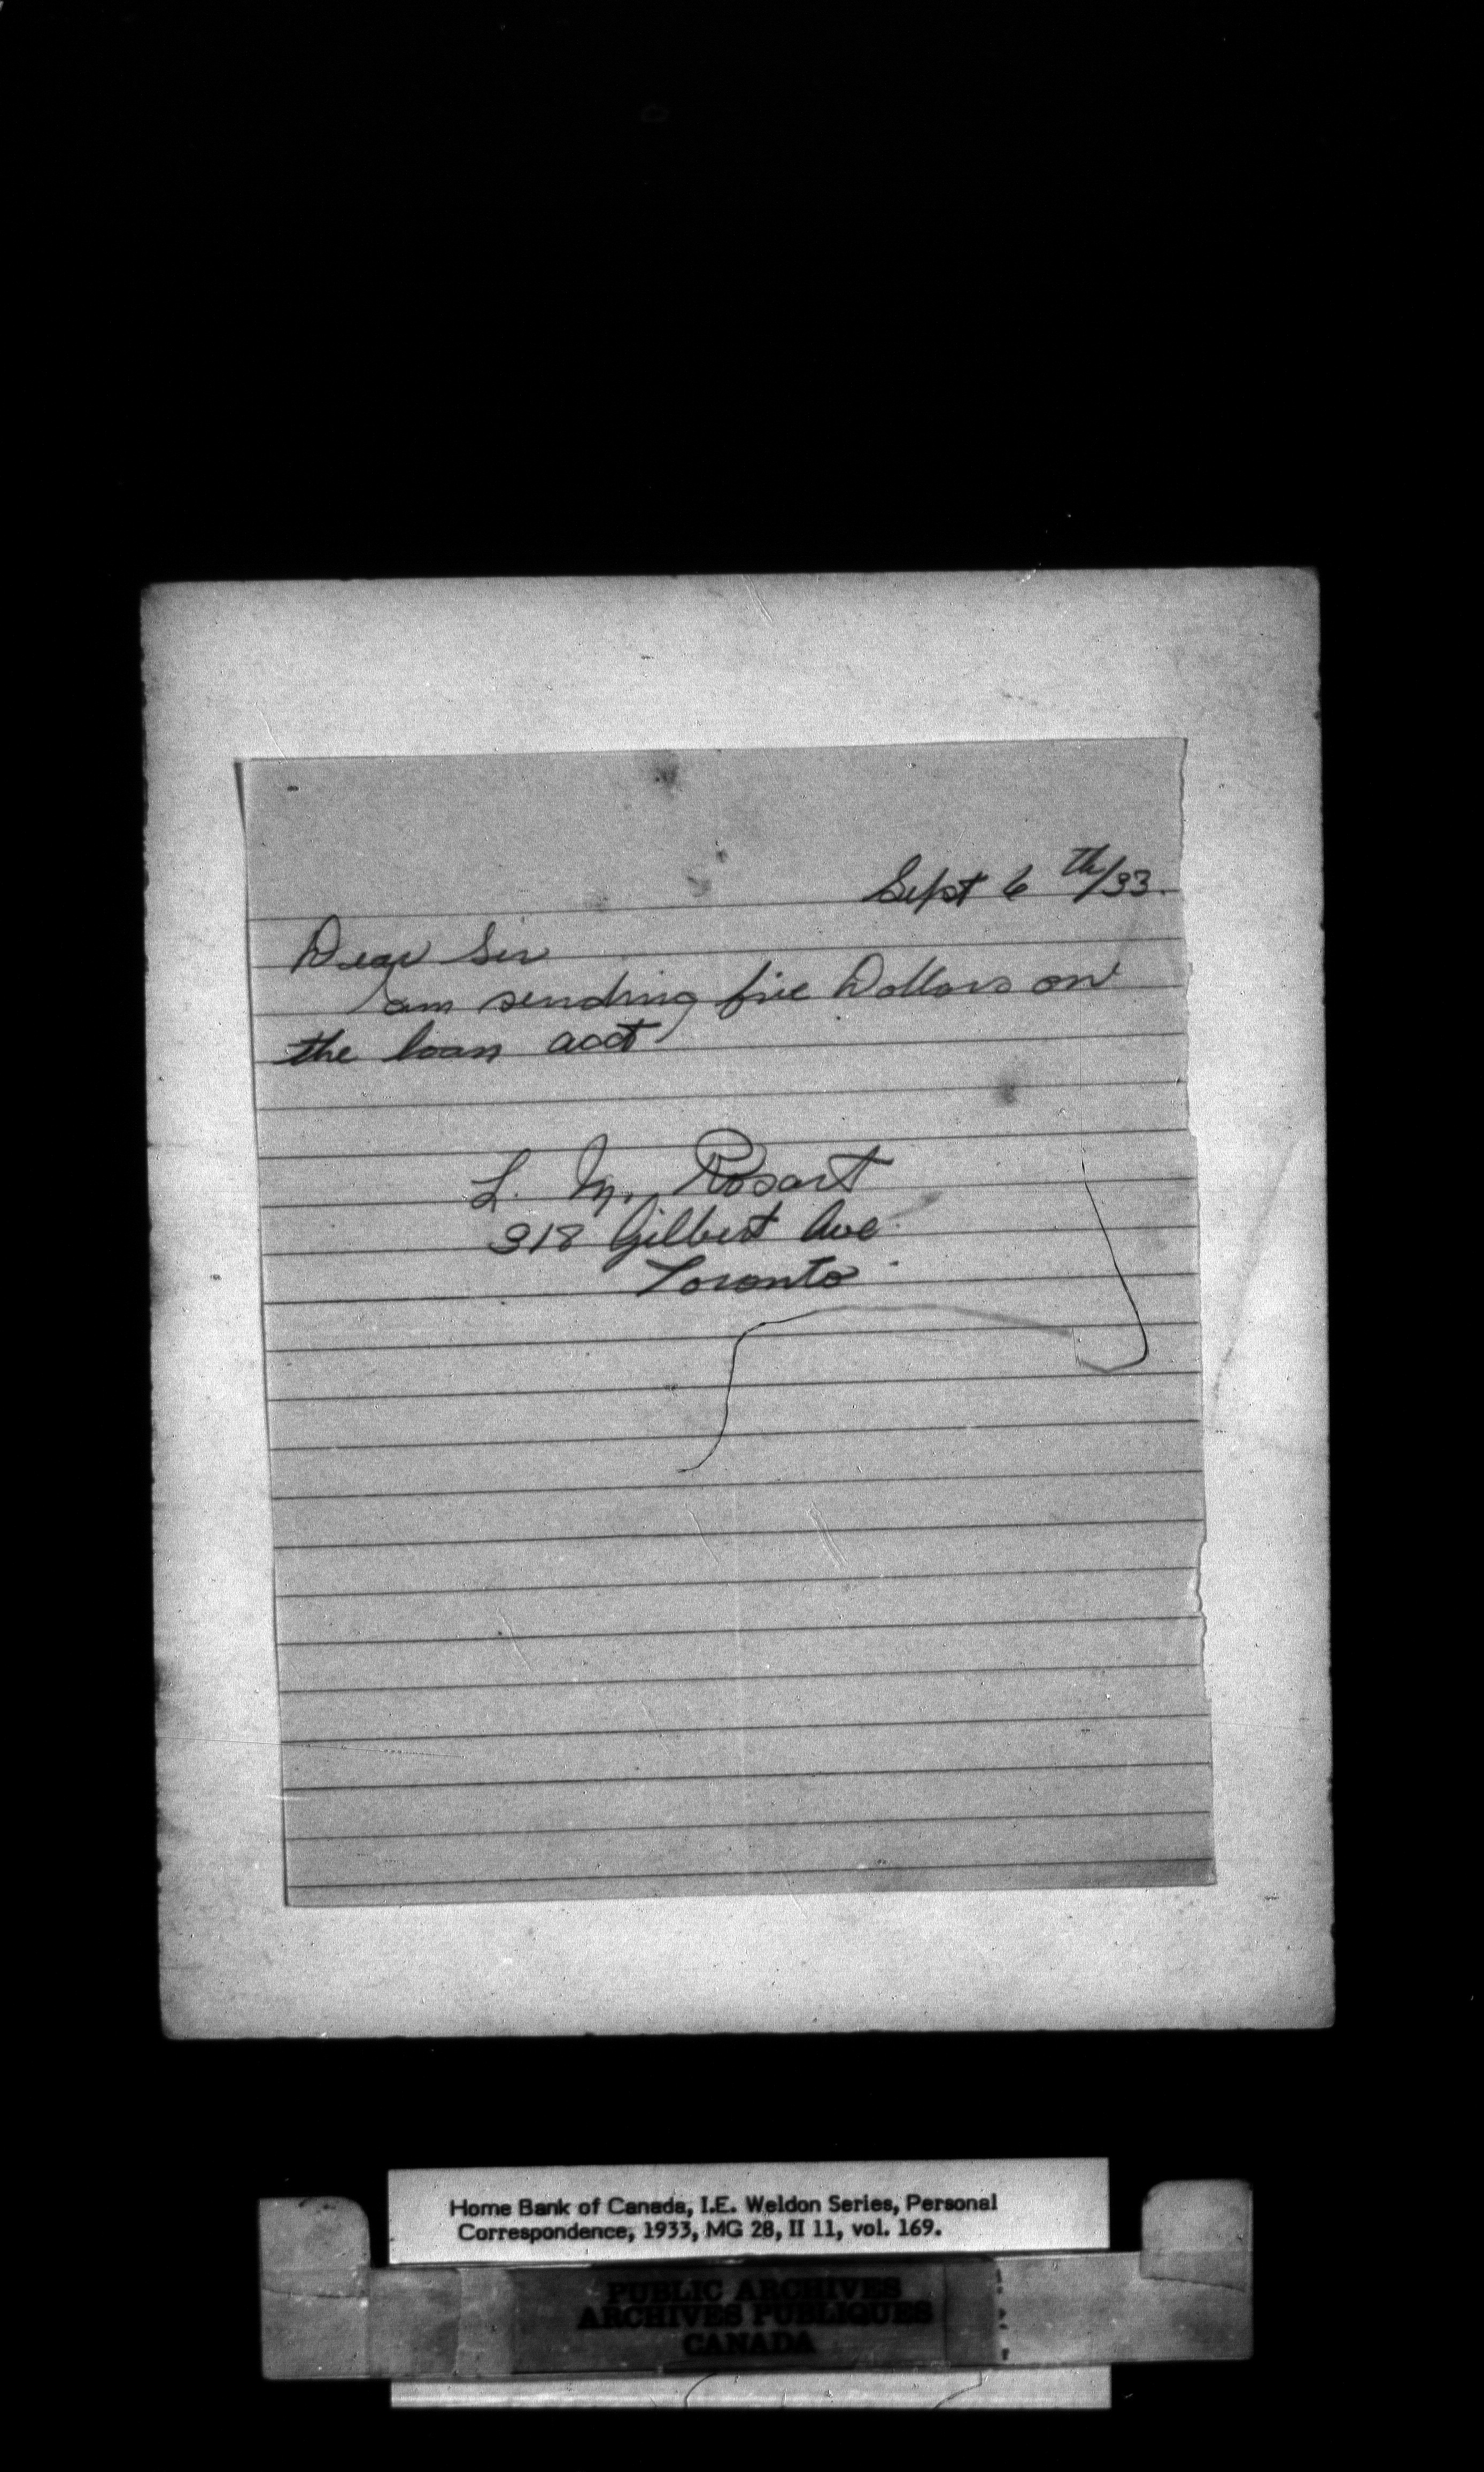 Sept 6th/33.
Dear Sir
am sending five Dollars on
the loan acct
L. M. Rosart
318 Gilbert Ave
Toronto
Home Bank of Canada, I.E. Weldon Series, Personal
Correspondence, 1933, MG 28, II 11, vol. 169.
PUBLIC ARCHIVES
ARCHIVES PUBLIQUES
CANADA